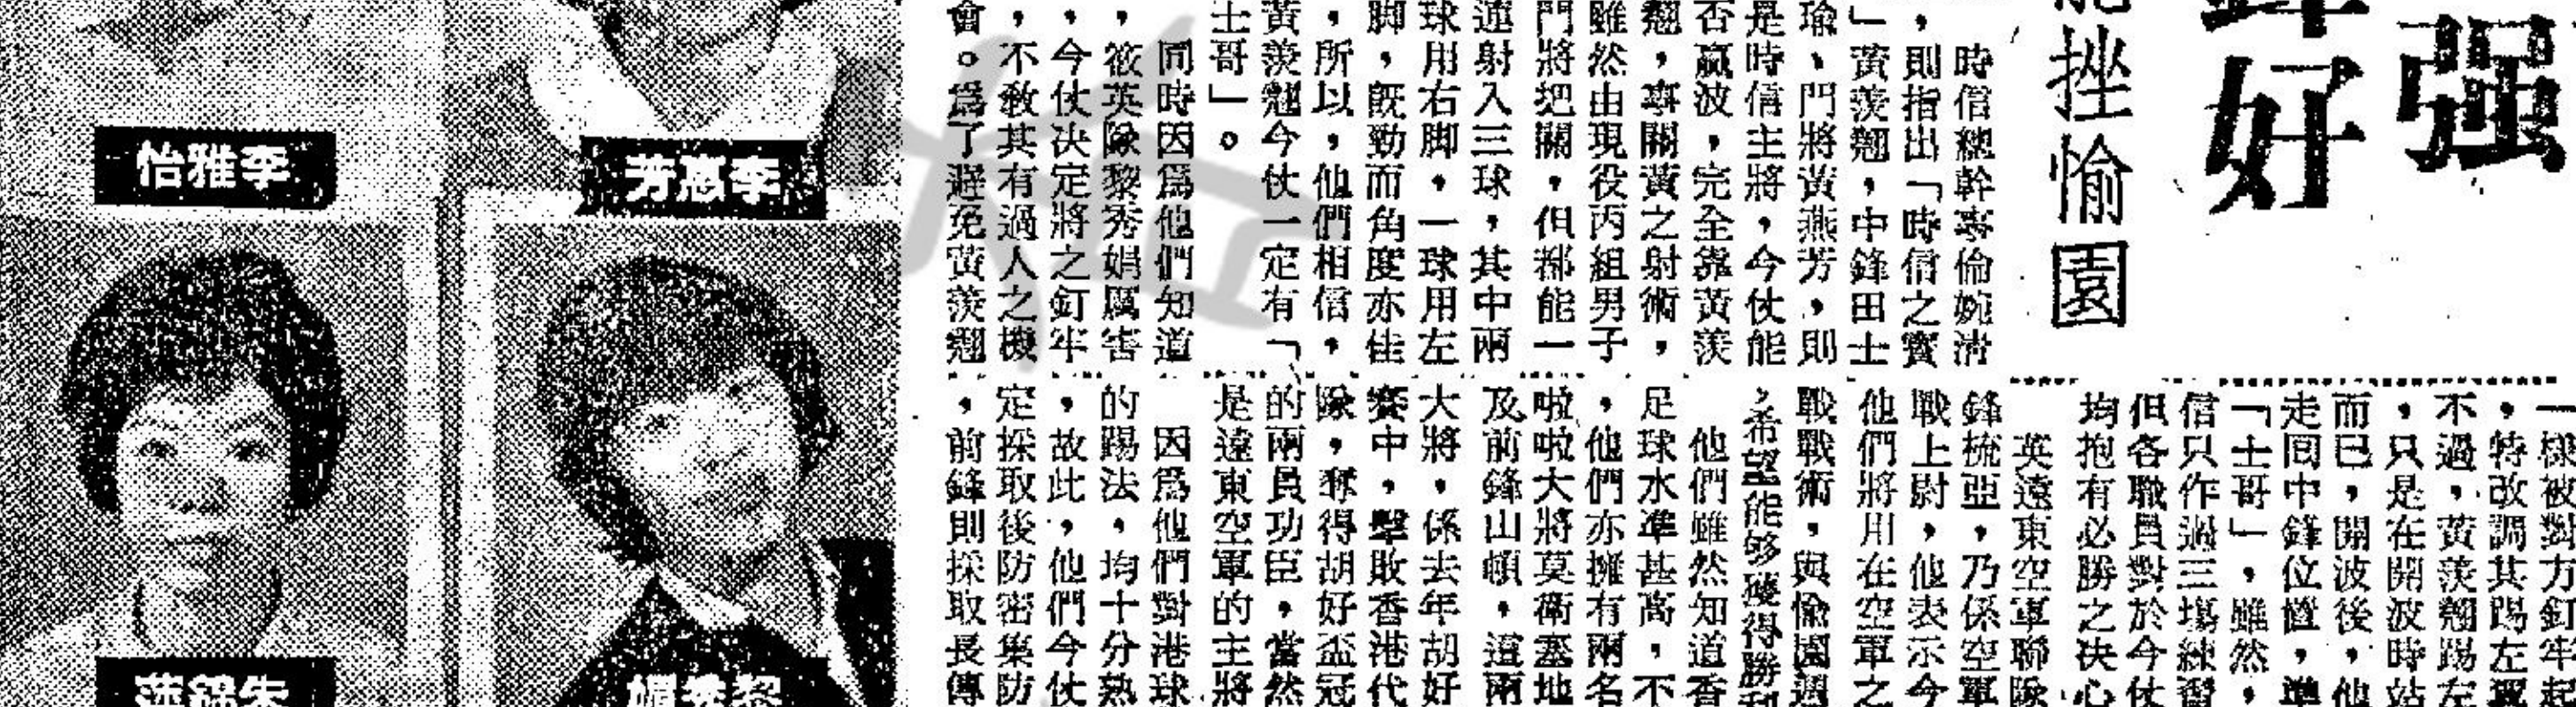 强
好
挫愉園
時信總幹事倫婉淸
，則指出「時信之寶
」黃羨翹，中鋒田士
瑜、門將黃燕芳，則
是時信主將，今仗能
否贏波，完全靠黃羨
翹，事關黃之射術，
雖然由現役丙組男子
門將把關，但都能一
連射入三球，其中兩
球用右脚，一球用左
脚，既勁而角度亦佳
，所以，他們相信，
黃羨翹今仗一定有「
士哥」。
同時因爲他們知道
，筱英隊黎秀娟厲害
，今仗决定將之釘牢
，不敎其有過人之機
會。爲了避免黃羨翹
一樣被對方釘牢起
，特改調其踢左翼
不過，黃羨翹踢左
，只是在開波時站
而已，開波後，他
走回中鋒位置，準
「士哥」，雖然，
信只作過三塲練習
但各職員對於今仗
均抱有必勝之决心
英遠東空軍聯隊
鋒梳亞，乃係空軍
戰上尉，他表示今
他們將用在空軍之
戰戰術，與愉園週
，希望能够獲得勝利
他們雖然知道香
足球水準甚高，不
，他們亦擁有兩名
啦啦大將莫衞塞地
及前鋒山頓，這兩
大將，係去年胡好
賽中，擊敗香港代
隊，奪得胡好盃冠
的兩員功臣，當然
是遠東空軍的主將
因爲他們對港球
的踢法，均十分熟
，故此，他們今仗
定採取後防密集防
，前鋒則採取長傳
李惠芳
李雅怡
黎秀娟
朱錦萍